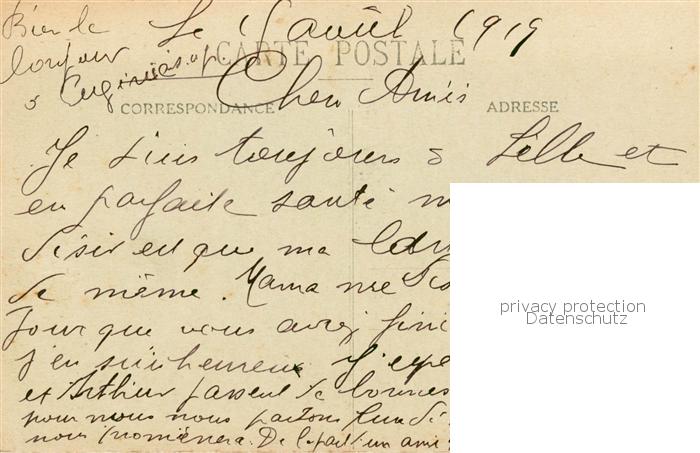 Bien le
bonjour
à Eugénie
Le 15 août 1919
CARTE POSTALE
Cher Amis
CORRESPONDANCE
ADRESSE
Je suis toujours à Lille et
en parfaite santé
désir est que ma
de même. Mama me
jour que vous avez fini
j'en suis heureux J'espè
et Arthur passent de bonnes
pour nous nous partons lundi
nous promener. De la part d'un ami
privacy protection
Datenschutz